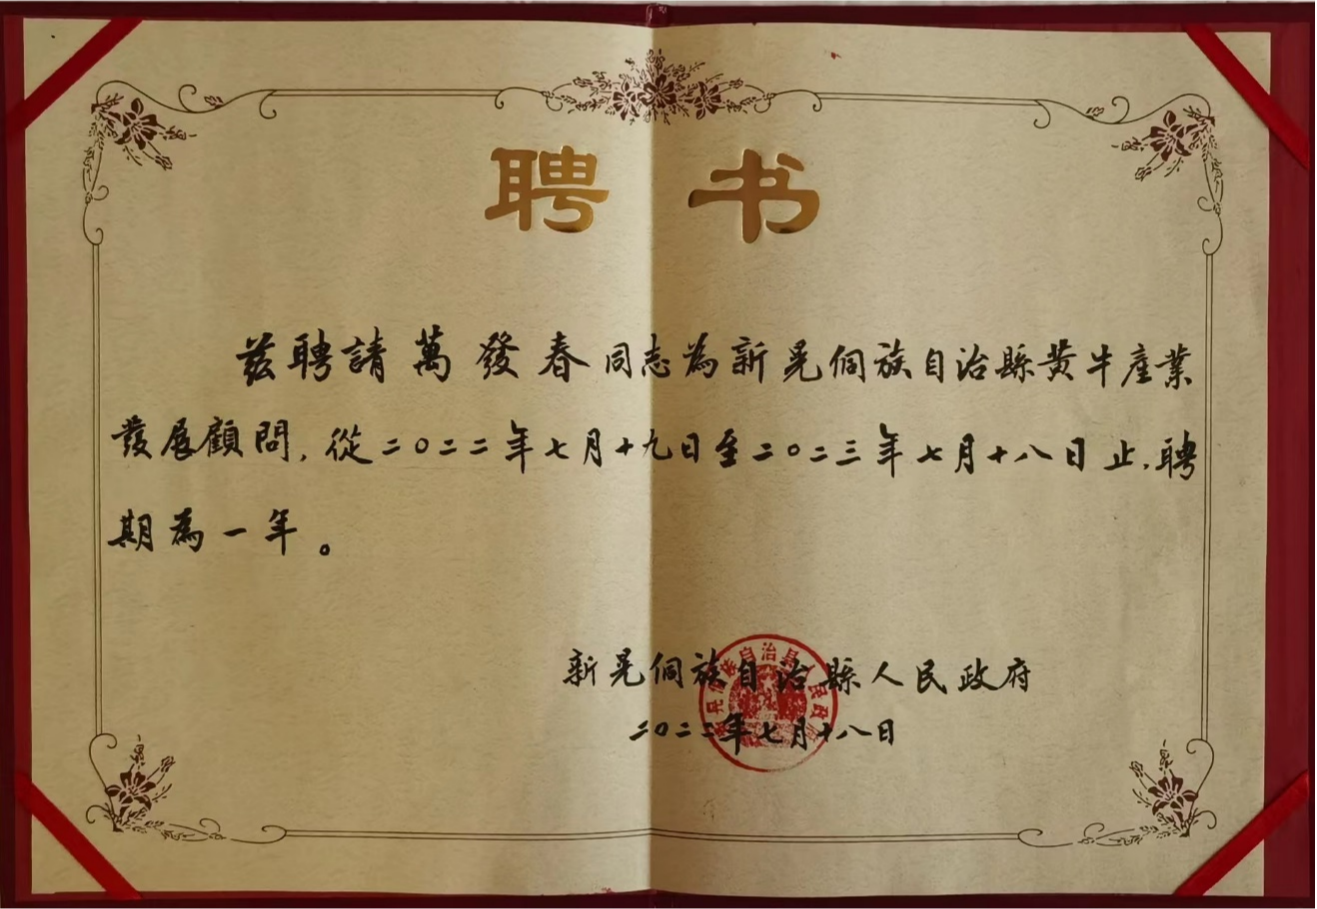 聘书
兹聘請萬發春同志為新晃侗族自治縣黄牛產業
發展顧問,從二〇二二年七月十九日至二〇二三年七月十八日止,聘
期為一年。
新晃侗族自治縣人民政府
二〇二二年七月十八日